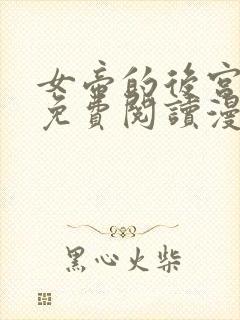 女帝的後宮
免費閱讀漫
黑心火柴